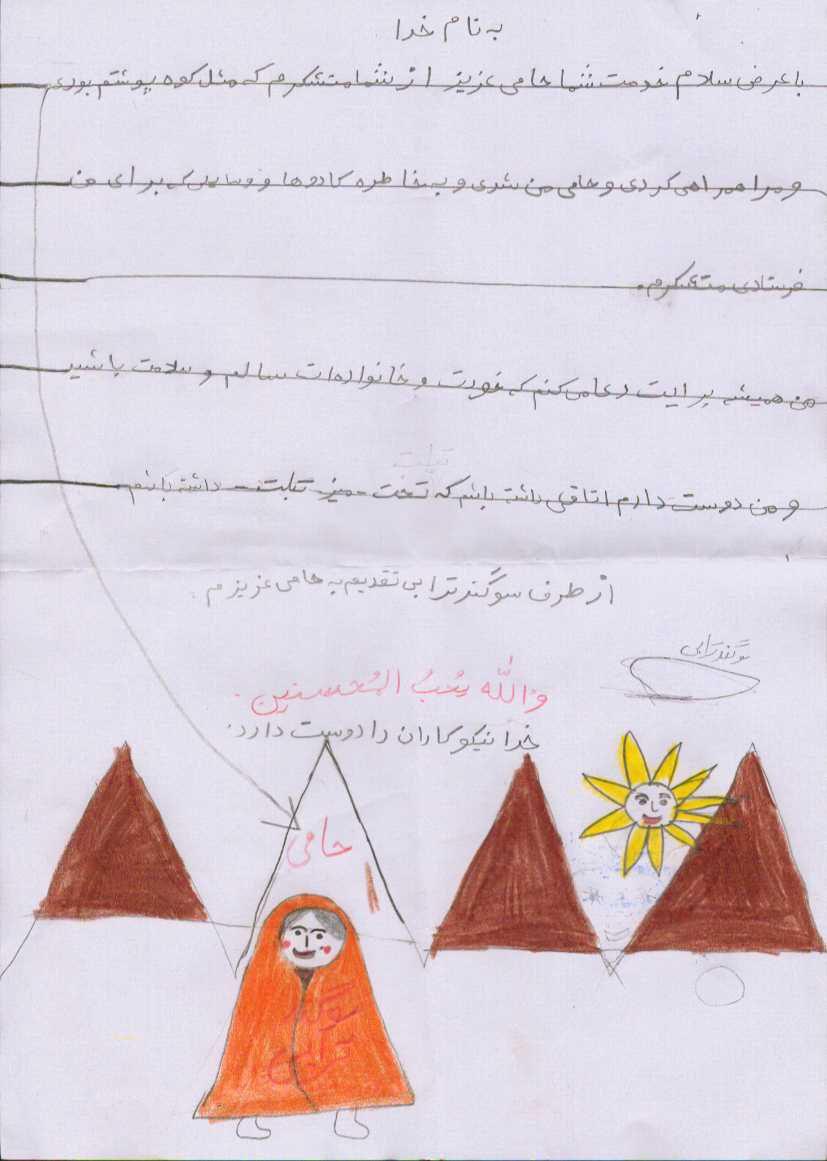 به نام خدا
با عرض سلام خدمت شما حامی عزیز از شما متشکرم که مثل کوه پوشتم بودی
و مرا همراهی کردی و حامی من شدی و به خاطره کادوها و وسایلی که برای من
فرستادی متشکرم.
من همیشه برایت دعا می کنم که خودت و خانواده ات سالم و سلامت باشید
تبلت
و من دوست دارم اتاقی داشته باشم که تخت - میز - تبلت - داشته باشم
از طرف سوگند ترابی تقدیم به حامی عزیزم.
سوگند ترابی
والله یُحبُ المُحسنین.
خدا نیکوکاران را دوست دارد.
حامی
سوگند
ترابی